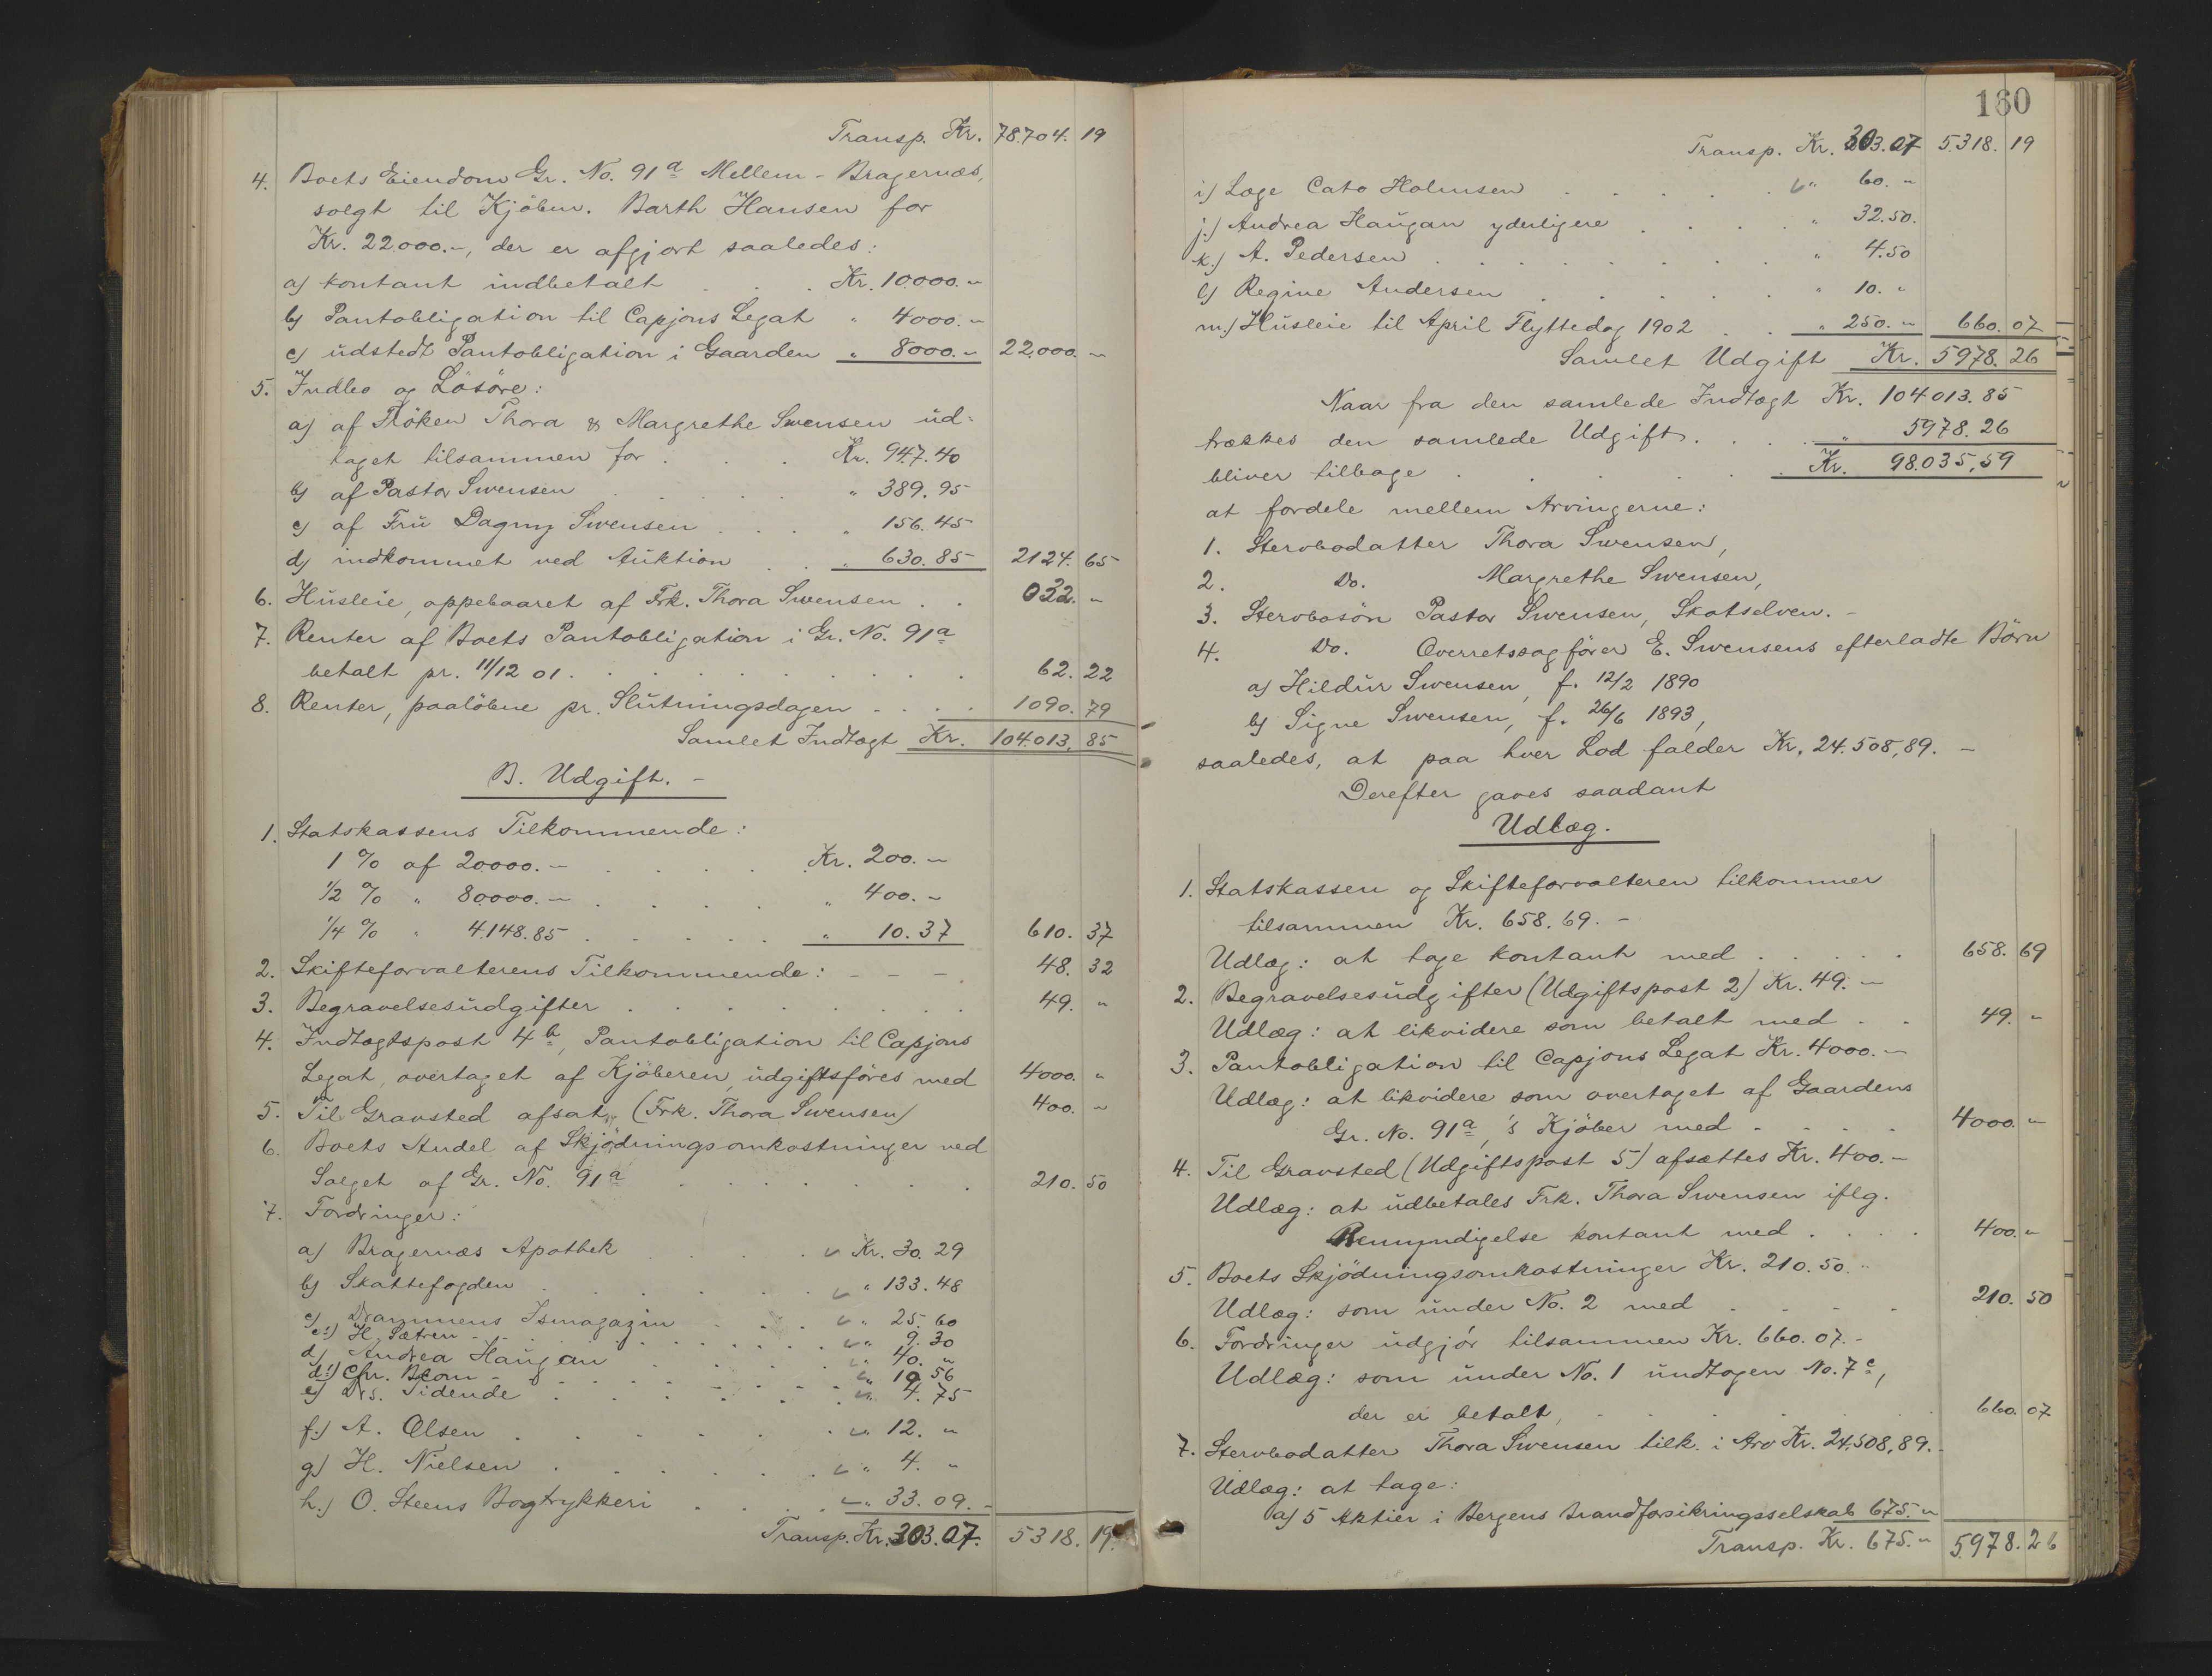 Transp. Kr. 78.704. 19
4. Boets Eiendom Gr. No. 91a Mellem-Bragernæs,
solgt til Kjöbm. Barth Hansen for
Kr. 22.000.-, der er afgjort saaledes:
a) kontant indbetalt . . . Kr. 10.000. "
b) Pantobligation til Capjons Legat " 4000. "
c) udstedt Pantobligation i Gaarden " 8000. " 22.000. "
5. Indbo og Lösöre:
a) af Fröken Thora & Margrethe Swensen ud-
taget tilsammen for . . . Kr. 947.40
b) af Pastor Swensen . . . . . " 389.95
c) af Frü Dagny Swensen . . . " 156.45
d) indkommet ved Auktion . . " 630.85 2124. 65
6. Husleie, oppebaaret af Frk. Thora Swensen . . 032. "
7. Renter af Boets Pantobligation i Gr. No. 91a
betalt pr. 11/12 01 . . . . . . . . . 62. 22
8. Renter, paalöbne pr. Slutningsdagen . . . . 1090. 79
Samlet Indtægt Kr. 104.013. 85
B. Udgift. -
1. Statskassens Tilkommende:
1 % af 20.000.- . . . . . Kr. 200. "
1/2 % " 80000.- . . . . . " 400. "
1/4 % " 4.148.85 . . . . . " 10.37 610. 37
2. Skifteforvalterens Tilkommende: - - - 48. 32
3. Begravelsesudgifter . . . . . . . . 49. "
4. Indtægtspost 4b, Pantobligation til Capjons
Legat, overtaget af Kjöberen, udgiftsföres med 4000. "
5. Til Gravsted afsat, (Frk. Thora Swensen) 400. "
6. Boets Andel af Skjödningsomkostninger ved
Salget af Gr. No. 91a . . . . . . . 210. 50
7. Fordringer:
a) Bragernæs Apothek . . . . Kr. 30.29
b) Skattefogden . . . . . . " 133.48
c) Drammens Ismagazin . . . " 25.60
c1) H. Sætren - . . . . . . " 9.30
d) Andrea Haugan . . . . . " 40. "
d1) Chr. Blom - . . . . . . " 10 56
e) Drs. Tidende . . . . . . " 4.75
f.) A. Olsen . . . . . . . " 12. "
g) H. Nielsen . . . . . . " 4. "
h.) O. Steens Bogtrykkeri . . . . " 33.09.-
Transp. Kr. 303.07. 5318. 19.
160
Transp. Kr. 303.07 5.318. 19
i) Læge Cato Holmsen . . . . . " 60. "
j.) Andrea Haugan yderligere . . . . " 32.50.
k.) A. Pedersen . . . . . . . . " 4.50
l) Regine Andersen . . . . . . " 10. "
m.) Husleie til April Flyttedag 1902 . . " 250. " 660. 07
Samlet Udgift Kr. 5978. 26
Naar fra den samlede Indtægt Kr. 104.013.85
trækkes den samlede Udgift . . . . " 5978.26
bliver tilbage . . . . . . Kr. 98.035,59
at fordele mellem Arvingerne:
1. Stervbodatter Thora Swensen,
2. Do. Margrethe Swensen,
3. Stervbosön Pastor Swensen, Skotselven. -
4. Do. Overretssagförer E. Swensens efterladte Börn
a) Hildur Swensen, f. 12/2 1890
b) Signe Swensen, f. 26/6 1893,
saaledes, at paa hver Lod falder Kr. 24.508,89. -
Derefter gaves saadant
Udlæg.
1. Statskassen og Skifteforvalteren tilkommer
tilsammen Kr. 658.69. -
Udlæg: at tage kontant med . . . . . 658. 69
2. Begravelsesudgifter (Udgiftspost 2) Kr. 49. -
Udlæg: at likvidere som betalt med . . 49. "
3. Pantobligation til Capjons Legat Kr. 4000. -
Udlæg: at likvidere som overtaget af Gaardens
Gr. No. 91a,'s Kjöber med . . . . 4000. "
4. Til Gravsted (Udgiftspost 5) afsættes Kr. 400. -
Udlæg: at udbetales Frk. Thora Swensen iflg.
Bemyndigelse kontant med . . . . 400. "
5. Boets Skjödningsomkostninger Kr. 210.50. -
Udlæg: som under No. 2 med . . . . 210. 50
6. Fordringer udgjör tilsammen Kr. 660.07. -
Udlæg: som under No. 1 undtagen No. 7c,
der er betalt, . . . . . . . 660. 07
7. Stervbodatter Thora Swensen tilk. i Arv Kr. 24.508,89. -
Udlæg: at tage:
a) 5 Aktier i Bergens Brandforsikringsselskab 675. "
Transp. Kr. 675. " 5978. 26